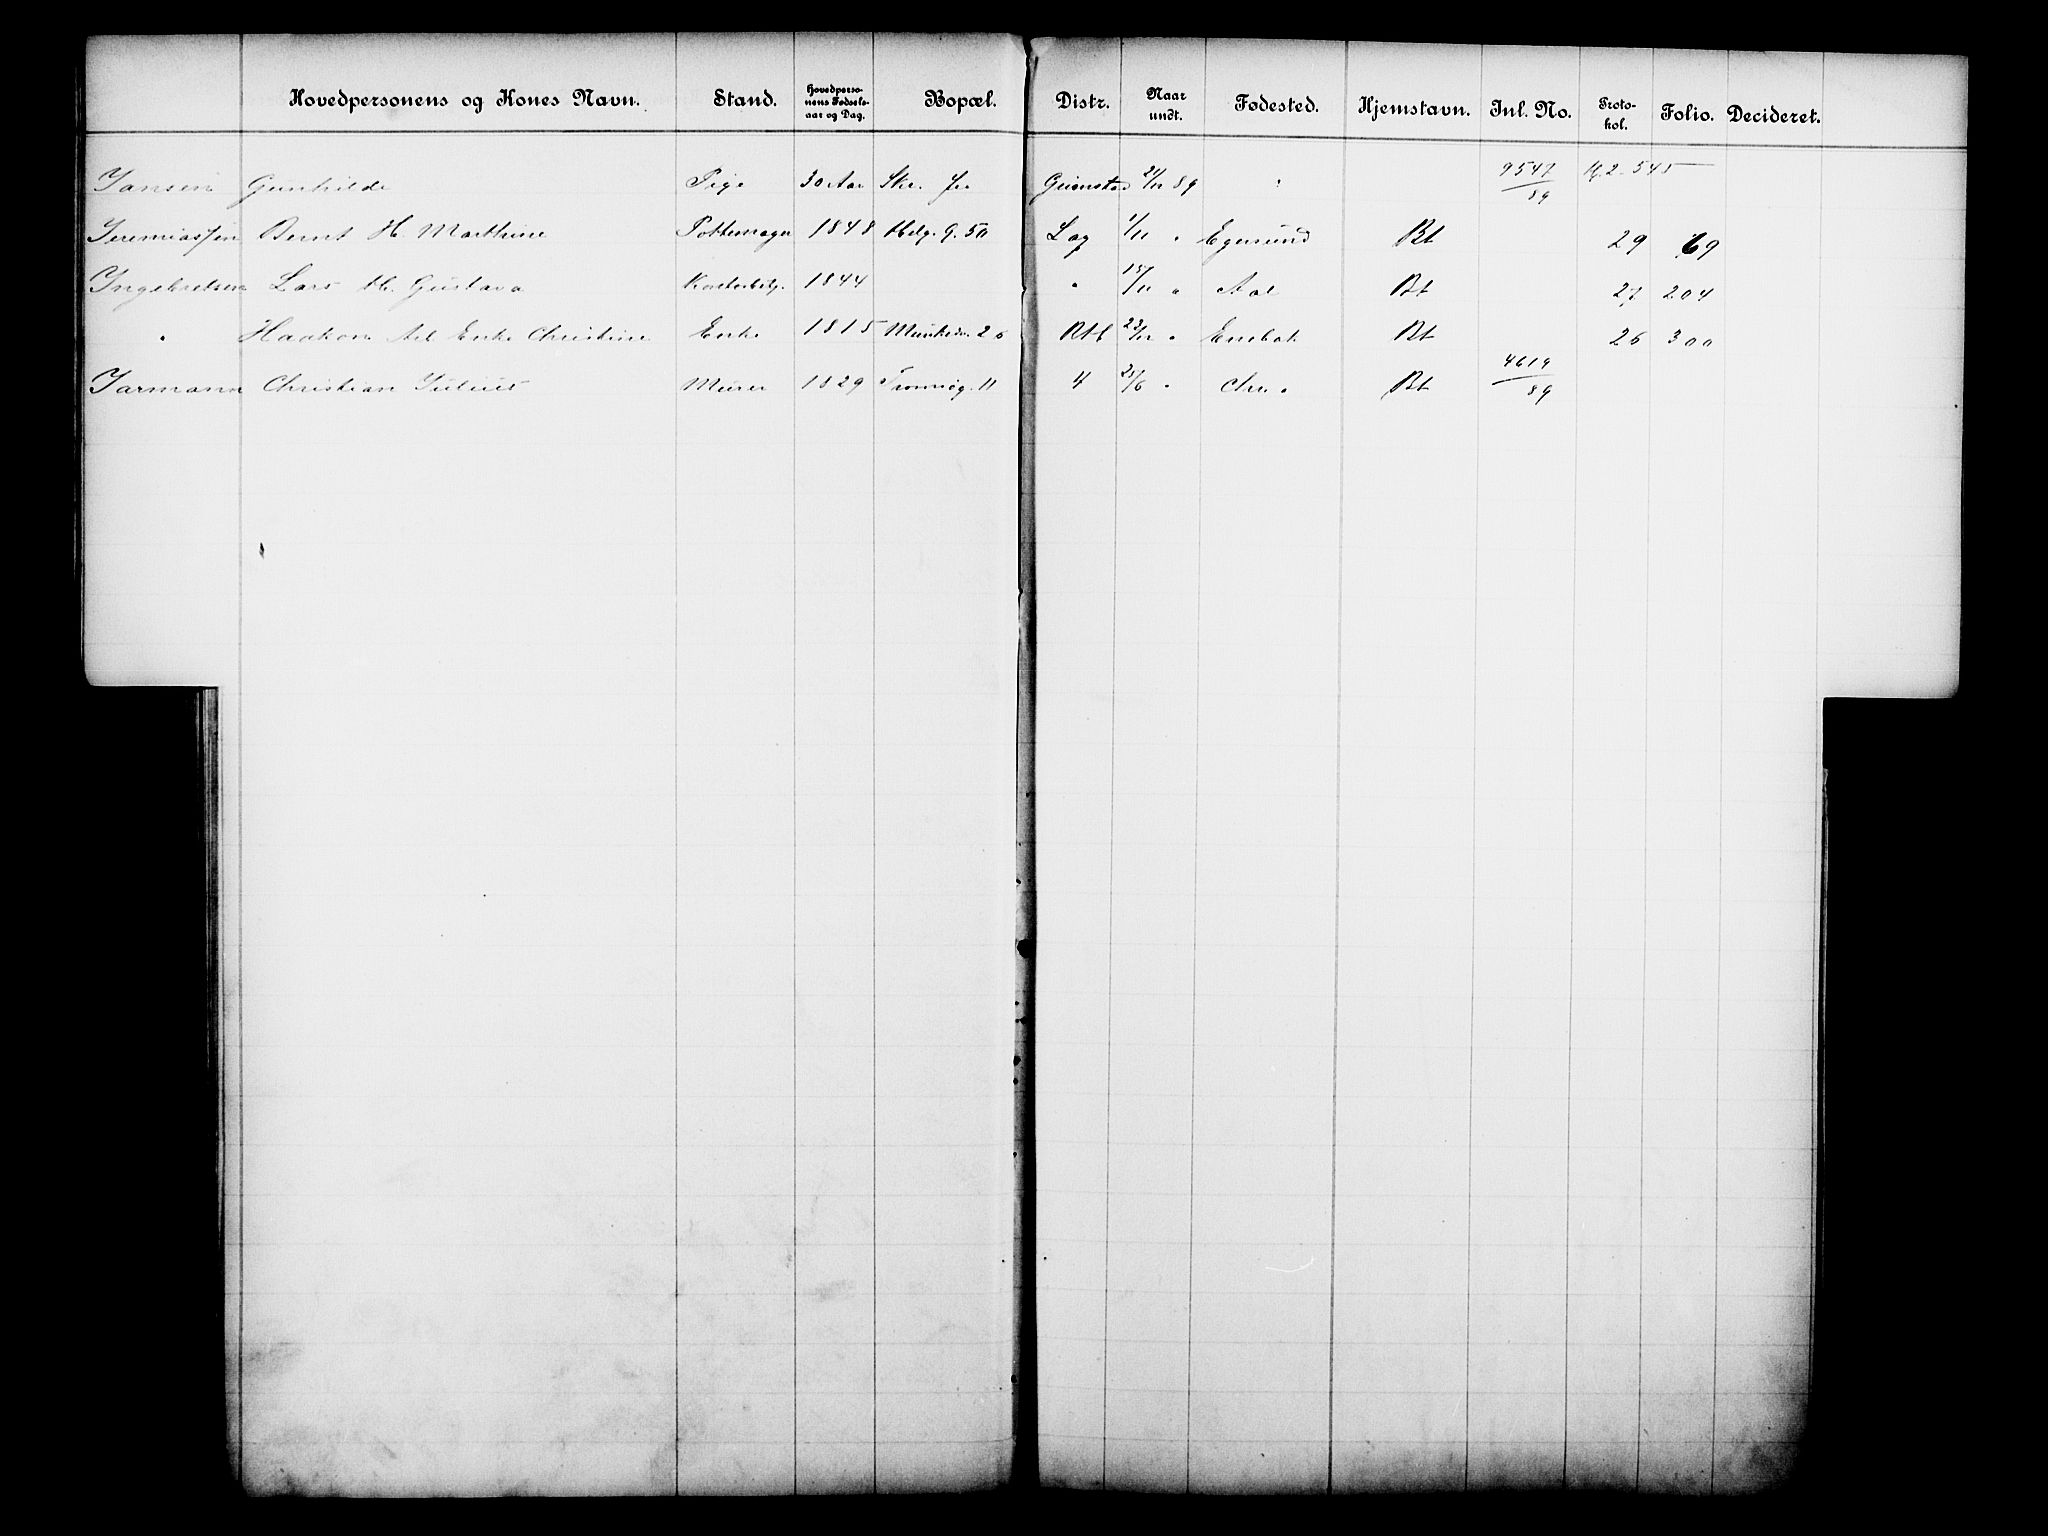 Hovedpersonens og Kones Navn. Stand. Hovedpersonens Fødselsaar og Dag. Bopæl. Distr. Naar undt. Fødested. Hjemstavn. Inl. No. Protokol. Folio. Decideret.
Jansen Gunhilde Pige 30 Aar Skr. fra Grimstad 21/12 89 " 9547/89 545
Jeremiassen Bernt H. Marthine Pottemager 1848 Helg. g. 50 Lag 1/11 " Egersund Bt 29 69
Ingebretsen Lars H. Gustava 1844 " 15/11 " Aal Bt 27 204
" Haakon Enke Christine Enke 1815 Munkedv. 26 Rtl 23/12 " Enebak Bt 26 300
Jarmann Christian Julius Murer 1829 Tromsøg. 11 4 25/6 " Chr. a Bt 4619/89